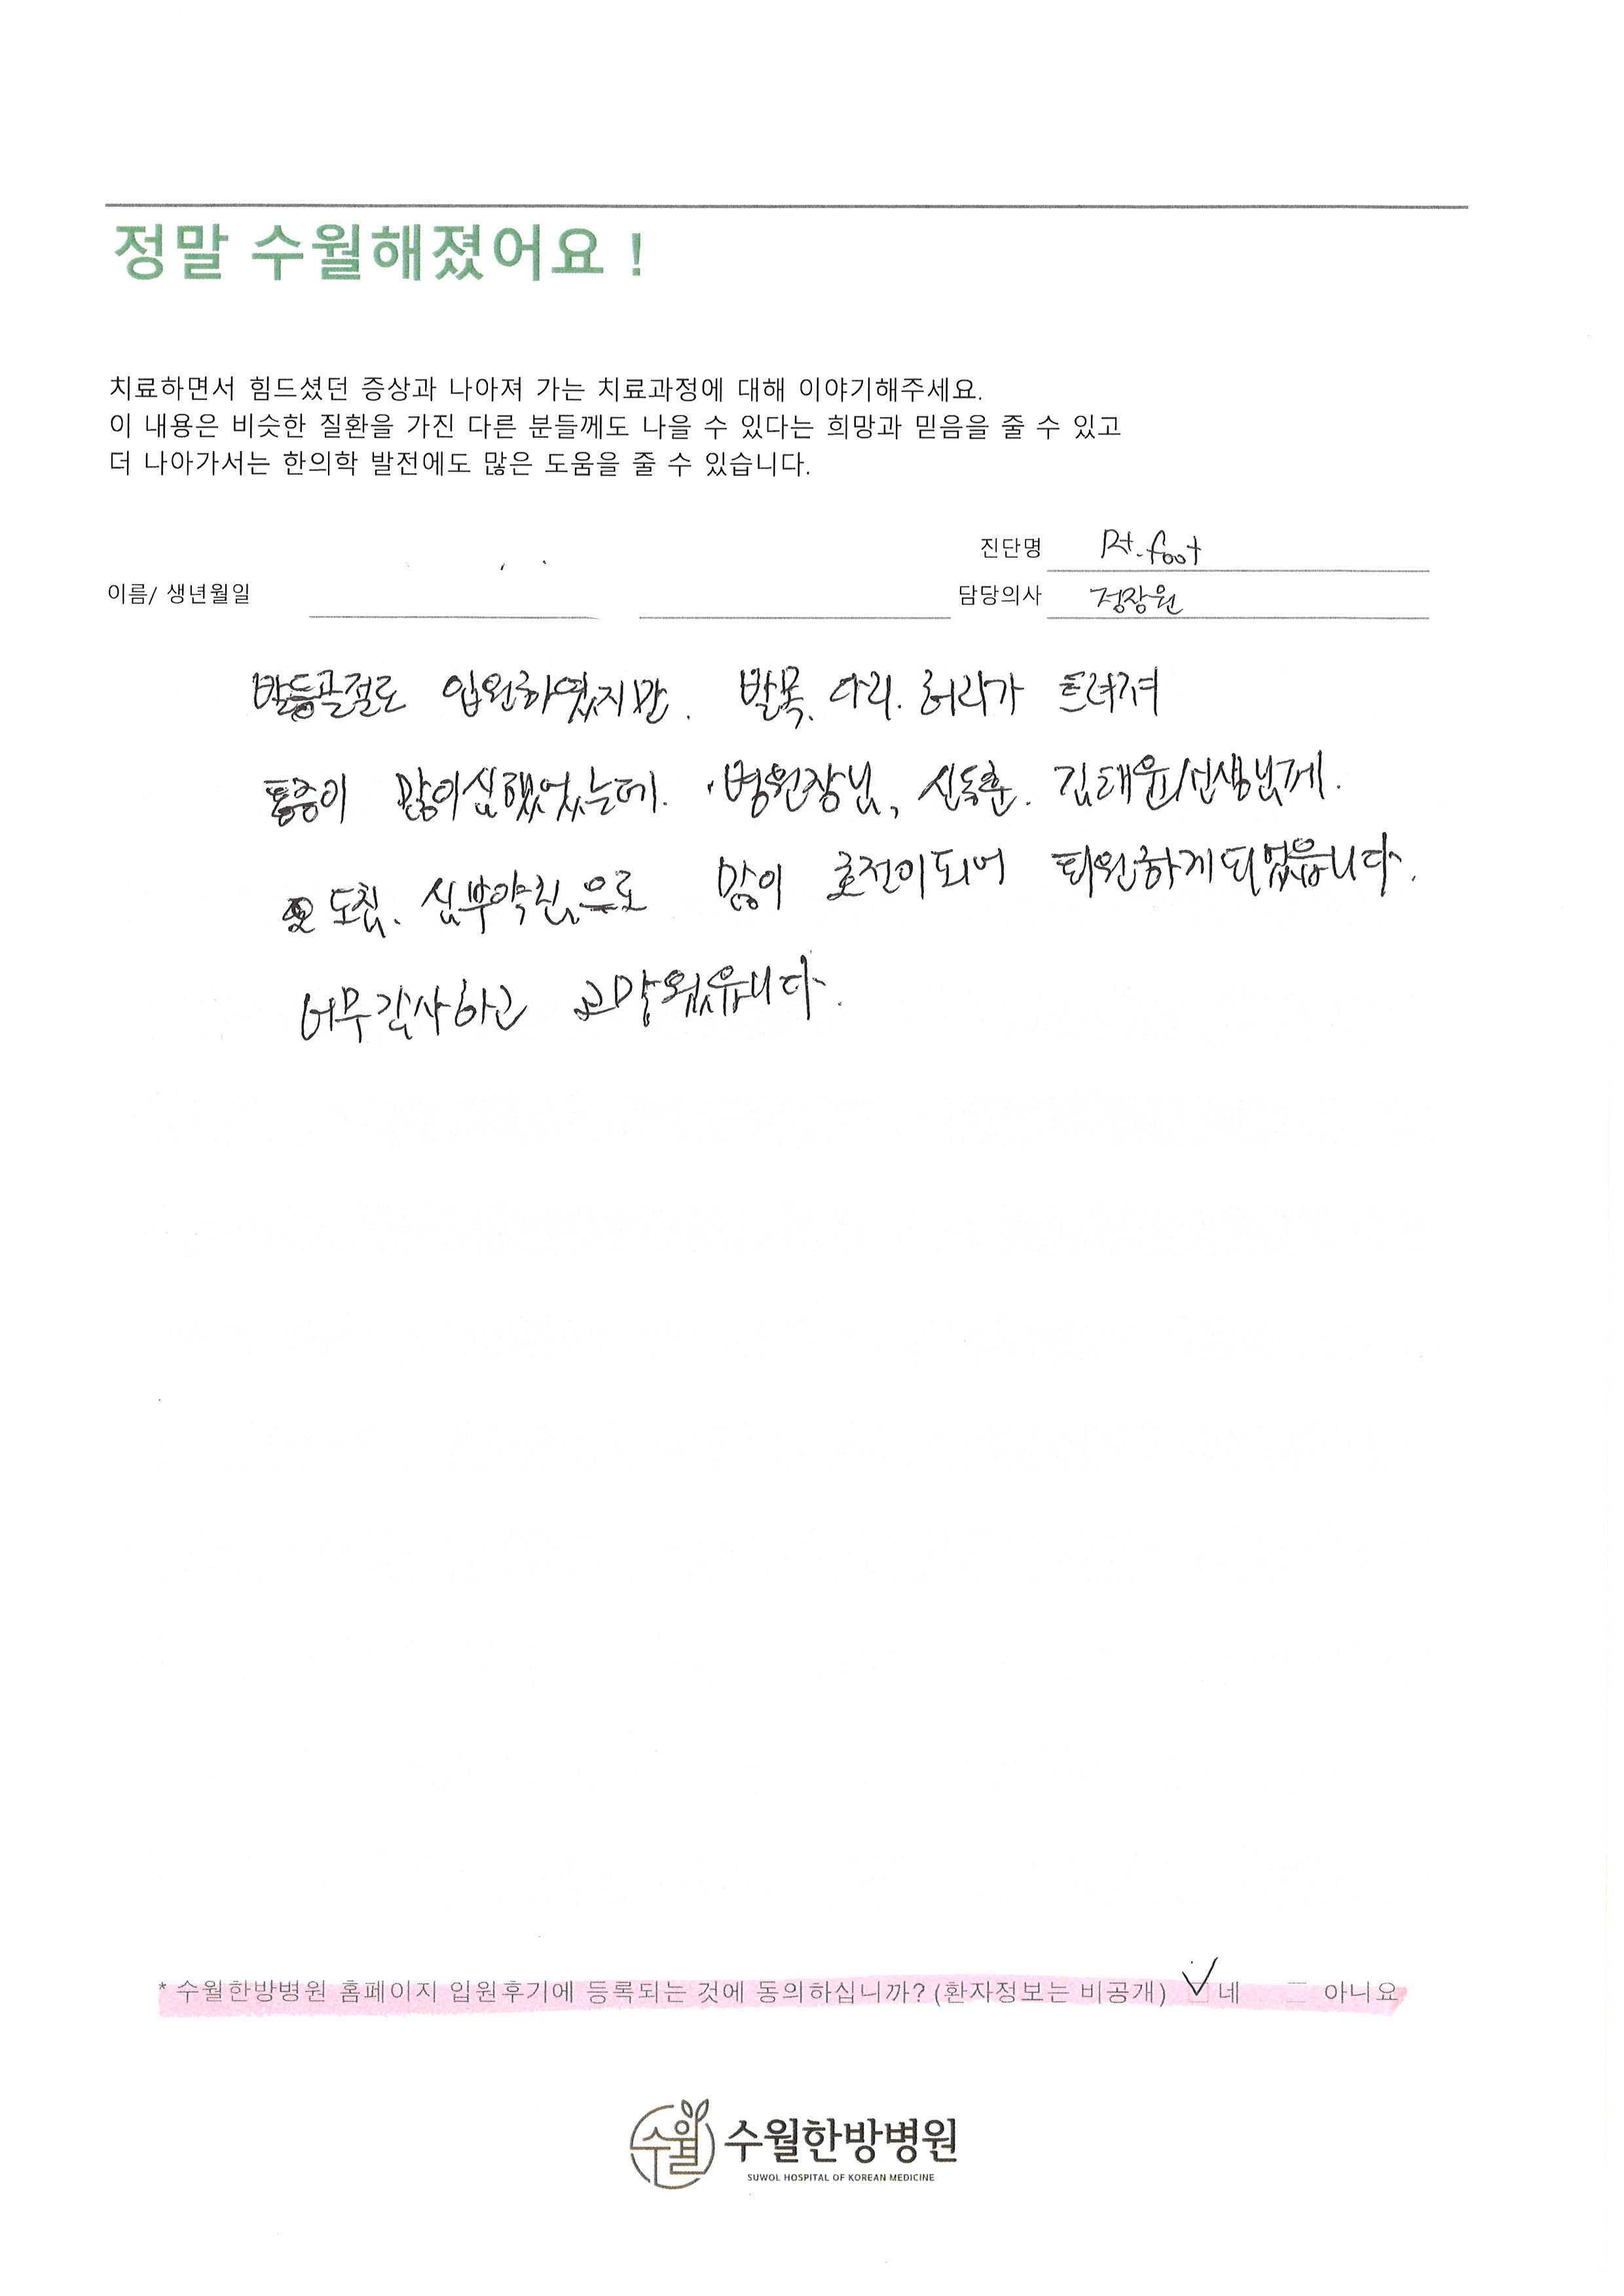 정말 수월해졌어요 !
치료하면서 힘드셨던 증상과 나아져 가는 치료과정에 대해 이야기해주세요.
이 내용은 비슷한 질환을 가진 다른 분들께도 나을 수 있다는 희망과 믿음을 줄 수 있고
더 나아가서는 한의학 발전에도 많은 도움을 줄 수 있습니다.
진단명 Rt. foot
이름/ 생년월일 담당의사 정장원
발등골절로 입원하였지만. 발목. 다리. 허리가 틀려져
통증이 많이심했었는데. 병원장님, 신동훈. 김태윤선생님께.
도침. 심부약침으로 많이 호전이되어 퇴원하게되었읍니다.
너무감사하고 고마웠읍니다.
* 수월한방병원 홈페이지 입원후기에 등록되는 것에 동의하십니까? (환자정보는 비공개) ✓ 네 □ 아니요
수월 수월한방병원
SUWOL HOSPITAL OF KOREAN MEDICINE